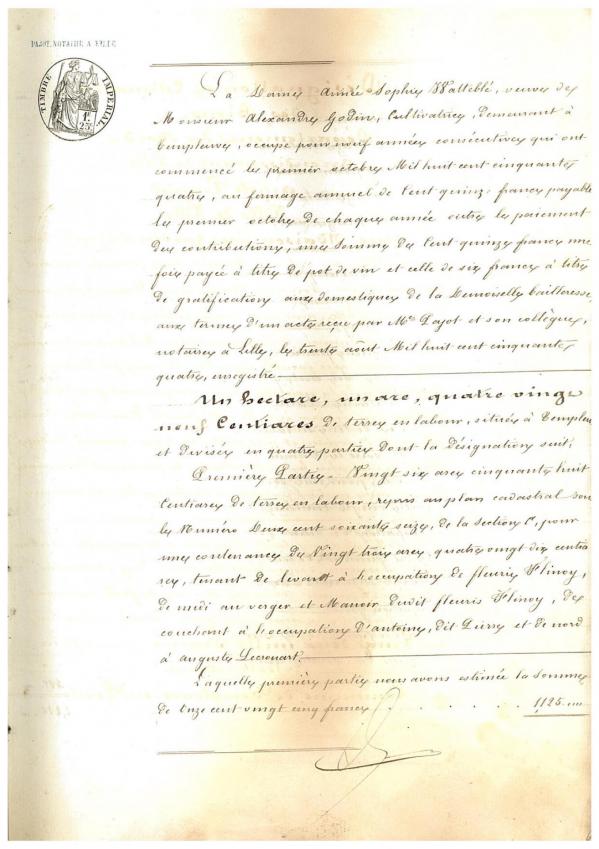 PAJOT, NOTAIRE A LILLE
TIMBRE IMPERIAL
1F
25C
La Dame Aimée Sophie Watteblé, veuve de
Monsieur Alexandre Godin, Cultivatrice, demeurant à
Templeuve, occupe pour neuf années consécutives qui ont
commencé le premier octobre Mil huit cent cinquante
quatre, au fermage annuel de Cent quinze francs payable
le premier octobre de chaque année outre le paiement
des contributions, une somme de Cent quinze francs une
fois payée à titre de pot de vin et celle de six francs à titre
de gratification aux domestiques de la Demoiselle bailleresse,
aux termes d'un acte reçu par Me Pajot et son collègue,
notaires à Lille, le trente août Mil huit cent cinquante
quatre, enregistré
Un hectare, un are, quatre vingt
neuf Centiares de terre en labour, située à Templeuve
et divisée en quatre parties dont la désignation suit:
Première Partie. Vingt six ares cinquante huit
Centiares de terre en labour, repris au plan cadastral sous
le Numéro Deux cent soixante seize, de la section C, pour
une contenance de Vingt trois ares quatre vingt dix centia
res, tenant de levant à l'occupation de fleuris Flinoy,
de midi au verger et Manoir dudit fleuris Flinoy, de
couchant à l'occupation d'antoine, dit Pierre et de nord
à auguste Lecrouart.
Laquelle première partie nous avons estimée la somme
de onze cent vingt cinq francs . . . . . . 1125 "